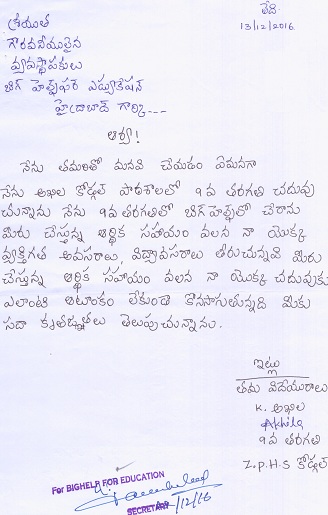 తేది
13/12/2016
శ్రీయుత
గౌరవనీయులైన
వ్యవస్థాపకులు
బిగ్ హెల్ప్ ఫర్ ఎడ్యుకేషన్
హైదరాబాద్ గార్కి---
ఆర్యా!
నేను తమరితో మనవి చేయడం ఏమనగా
నేను అఖిల కోడ్గల్ పాఠశాలలో 9వ తరగతి చదువు
చున్నాను నేను 9వ తరగతిలో బిగ్ హెల్ప్ లో చేరాను
మీరు చేస్తున్న ఆర్థిక సహాయం వలన నా యొక్క
వ్యక్తిగత అవసరాలు, విద్యావసరాలు తీరుచున్నవి మీరు
చేస్తున్న ఆర్థిక సహాయం వలన నా యొక్క చదువుకు
ఎలాంటి ఆటంకం లేకుండా కొనసాగుతున్నది మీకు
సదా కృతజ్ఞతలు తెలుపుచున్నాను.
ఇట్లు
తమ విదేయురాలు
K. అఖిల
Akhila
9వ తరగతి
Z.P.H.S కోడ్గల్
For BIGHELP FOR EDUCATION
SECRETARY
/12/16